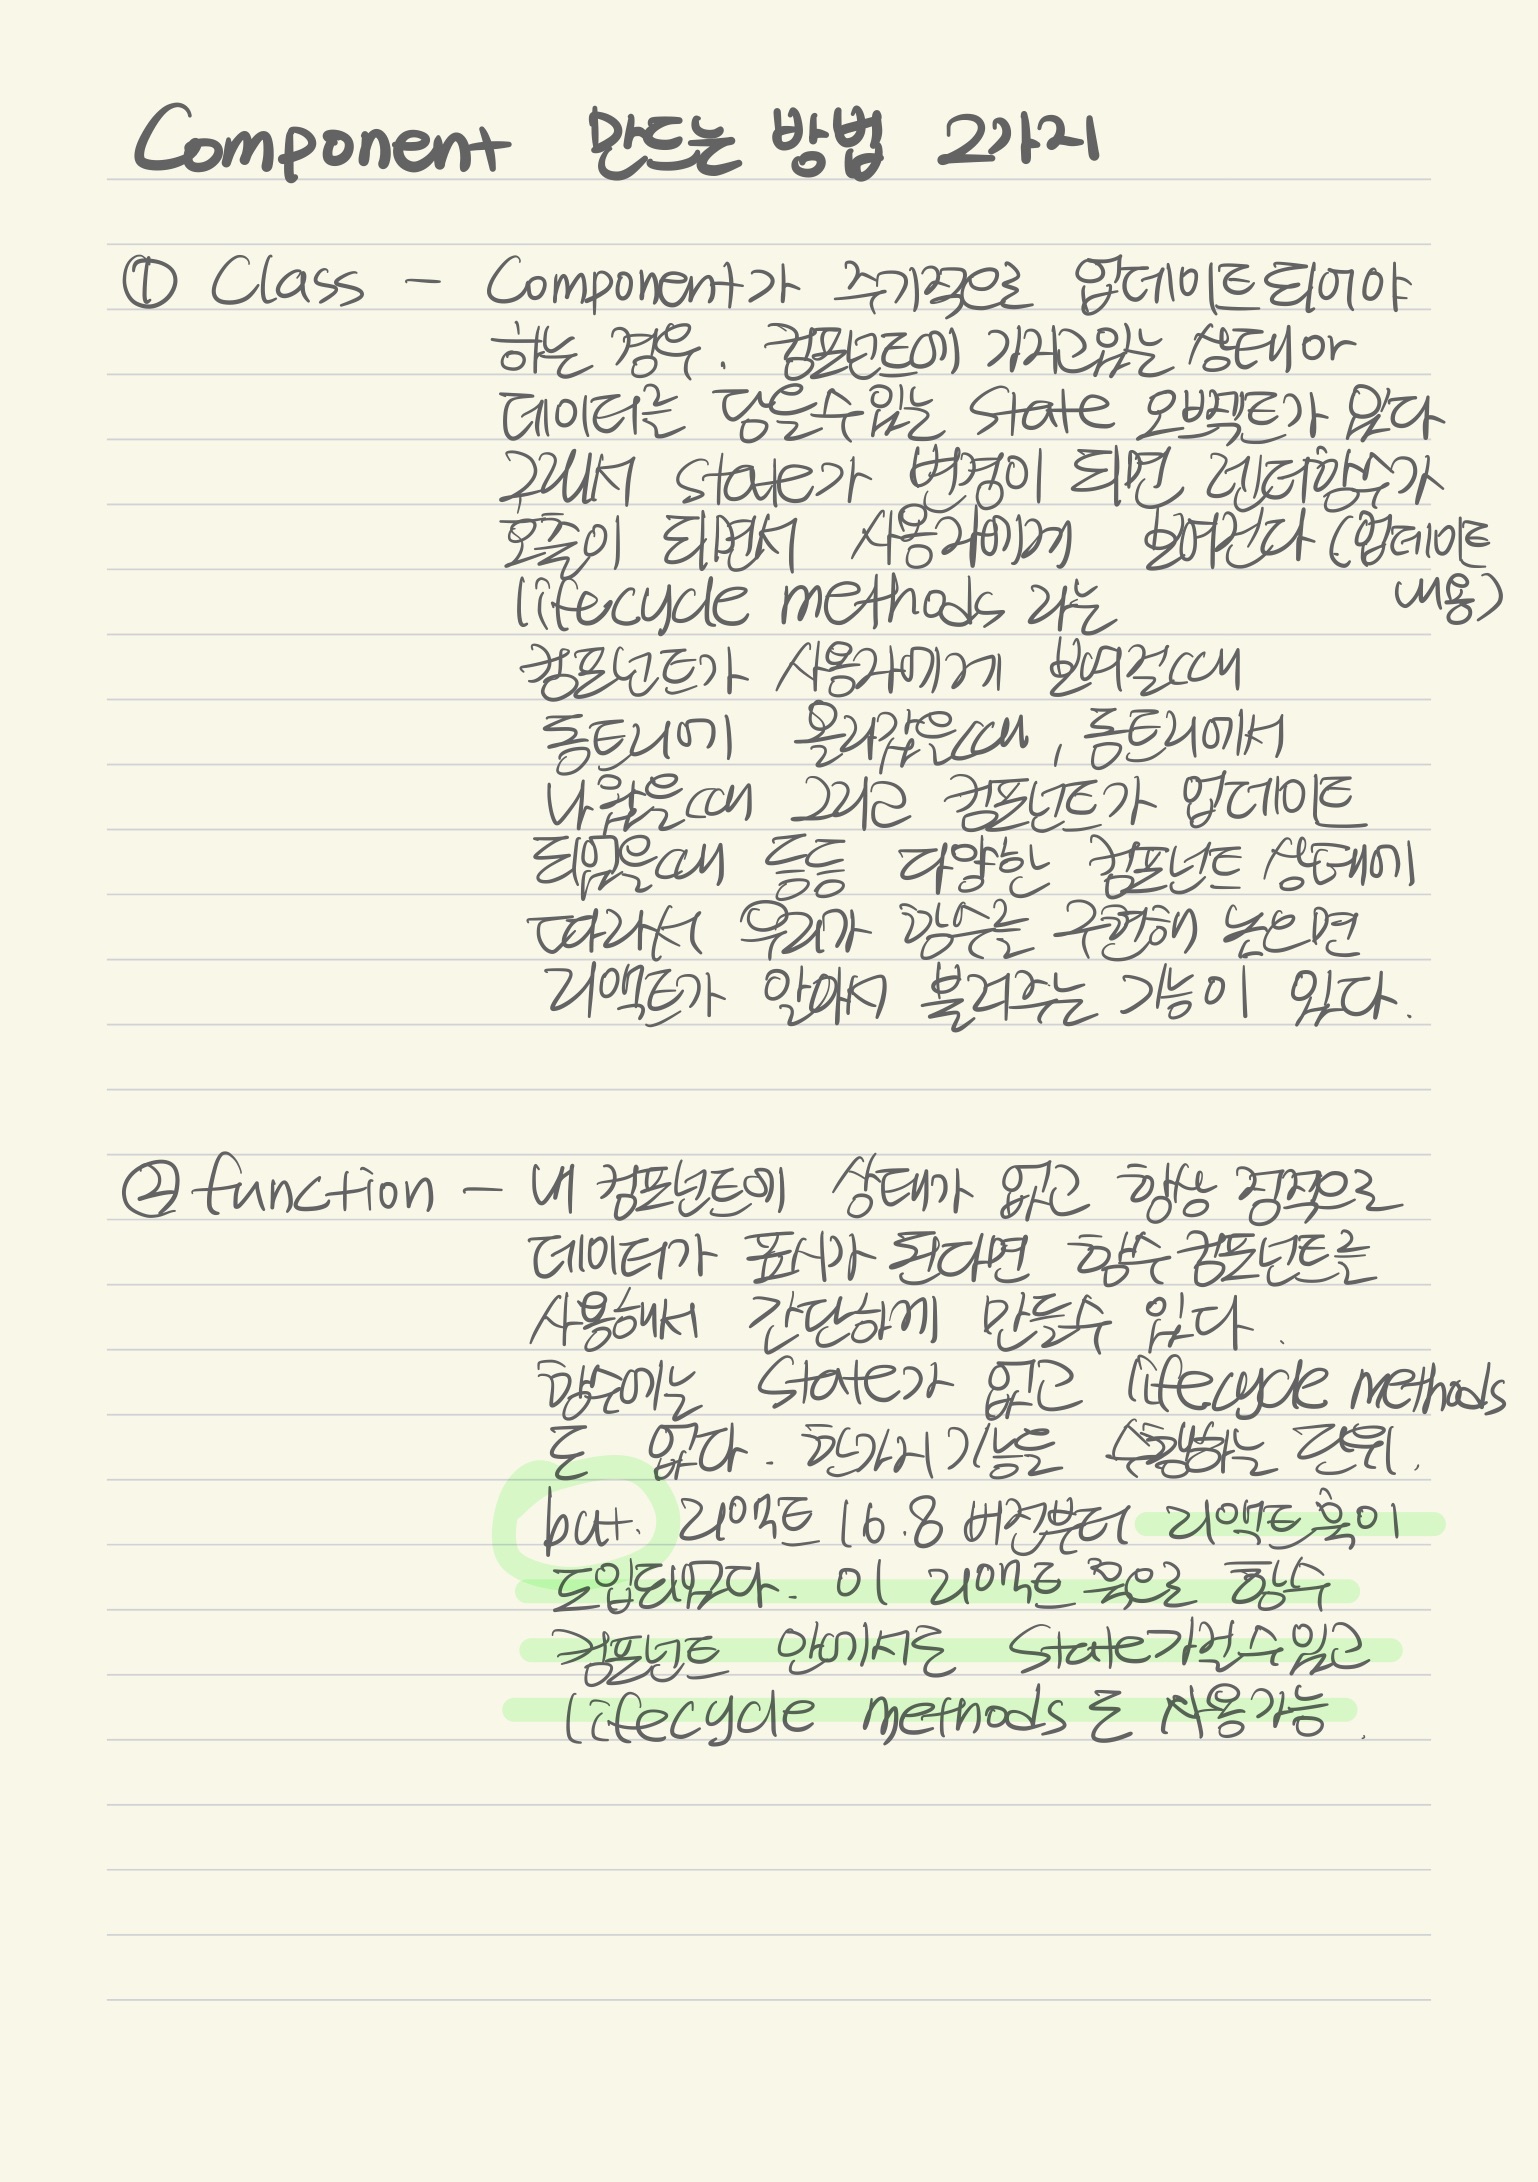 Component 만드는 방법 2가지
① Class - Component가 주기적으로 업데이트되어야
하는 경우. 컴포넌트에 가지고있는 상태 or
데이터를 담을수있는 state 오브젝트가 있다
그래서 state가 변경이 되면 렌더함수가
호출이 되면서 사용자에게 보여진다 (업데이트
내용)
lifecycle methods 라는
컴포넌트가 사용자에게 보여질때
돔트리에 올라갔을때, 돔트리에서
나왔을때 그리고 컴포넌트가 업데이트
되었을때 등등 다양한 컴포넌트 상태에
따라서 우리가 함수를 구현해 놓으면
리액트가 알아서 불러주는 기능이 있다.
② function - 내 컴포넌트에 상태가 없고 항상 정적으로
데이터가 표시가 된다면 함수 컴포넌트를
사용해서 간단하게 만들수 있다.
함수에는 State가 없고 lifecycle methods
도 없다. 한가지 기능을 수행하는 단위.
but. 리액트 16.8 버전부터 리액트 훅이
도입되었다. 이 리액트 훅으로 함수
컴포넌트 안에서도 State가질수있고
lifecycle methods 도 사용가능.